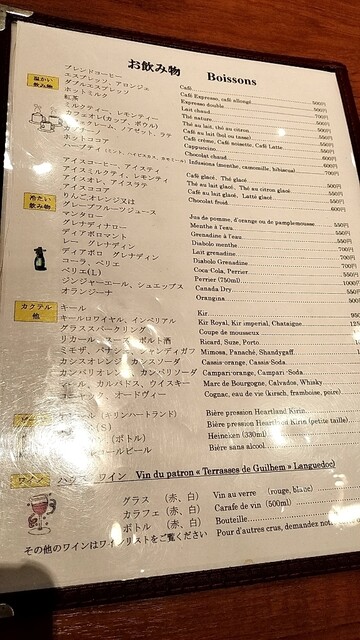 お飲み物 Boissons
温かい飲み物
ブレンドコーヒー Café
エスプレッソ、アロンジェ Café Espresso, café allongé 500円
ダブルエスプレッソ Espresso double
ホットミルク Lait chaud
紅茶 Thé nature
ミルクティー、レモンティー Thé au lait, thé au citron
カフェオレ(カップ、ボウル) Café au lait (bol ou tasse)
クレーム、ノアゼット、ラテ Café crème, Café noisette, Café Latte 550円
カプチーノ Cappuccino
ホットココア Chocolat chaud
ハーブティ(ミント、ハイビスカス、カモミール) Infusions (menthe, camomille, hibiscus) 700円
冷たい飲み物
アイスコーヒー、アイスティ Café glacé, Thé glacé
アイスミルクティ、レモンティ Thé au lait glacé, Thé au citron glacé
アイスオレ、アイスラテ Café au lait glacé, Latté glacé
アイスココア Chocolat froid 600円
りんごオレンジ又はグレープフルーツジュース Jus de pomme, d'orange ou de pamplemousse 550円
マンタロー Menthe à l'eau
グレナディナロー Grenadine à l'eau 550円
ディアボロマント Diabolo menthe 550円
レー グレナディン Lait grenadine 700円
ディアボロ グレナディン Diabolo Grenadine 700円
コーラ、ペリエ Coca-Cola, Perrier 550円
ペリエ(L) Perrier (750ml) 1000円
ジンジャーエール、シュエップス Canada Dry 550円
オランジーナ Orangina 500円
カクテル他
キール Kir
キールロワイヤル、インペリアル Kir Royal, Kir imperial, Chataigne
グラススパークリング Coupe de mousseux
リカール、スーズ、ポルト酒 Ricard, Suze, Porto
ミモザ、パナシェ、シャンディガフ Mimosa, Panaché, Shandygaff
カシスオレンジ、カシスソーダ Cassis-orange, Cassis-Soda
カンパリオレンジ、カンパリソーダ Campari-orange, Campari-Soda
マール、カルバドス、ウイスキー Marc de Bourgogne, Calvados, Whisky
コニャック、オードヴィー Cognac, eau de vie (kirsch, framboise, poire)
(キリンハートランド) Bière pression Heartland Kirin
(S) Bière pression Heartland Kirin (petite taille)
(ボトル) Heineken (330ml)
コールビール Bière sans alcool
ワイン ワイン Vin du patron « Terrasses de Guilhem » Languedoc)
グラス (赤、白) Vin au verre (rouge, blanc)
カラフェ (赤、白) Carafe de vin (500ml)
ボトル (赤、白) Bouteille
その他のワインはワインリストをご覧ください Pour d'autres crus, demandez